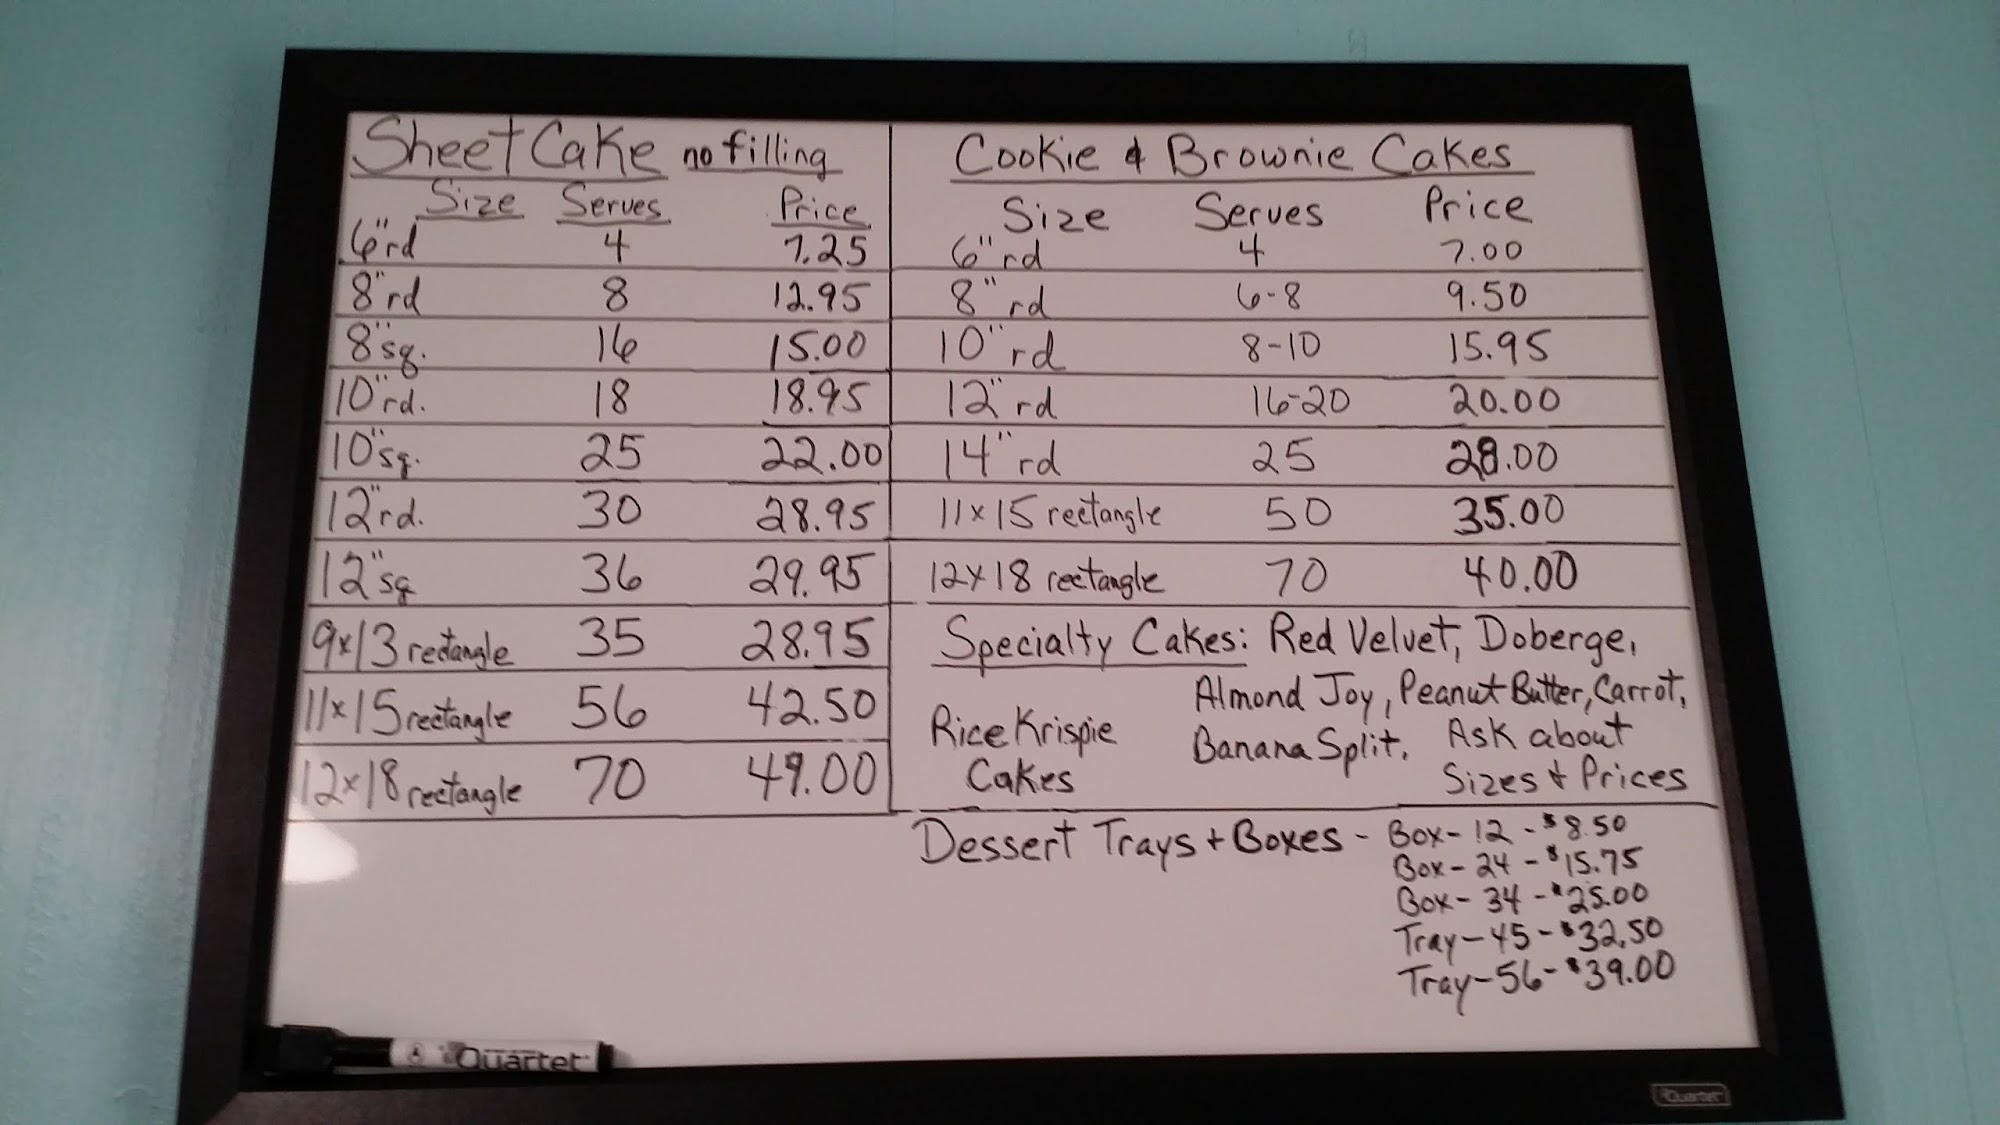 Sheet Cake no filling
Size Serves Price
6"rd 4 7.25
8"rd 8 12.95
8"sq. 16 15.00
10"rd. 18 18.95
10"sq. 25 22.00
12"rd. 30 28.95
12"sq 36 29.95
9x13 rectangle 35 28.95
11x15 rectangle 56 42.50
12x18 rectangle 70 49.00
Cookie & Brownie Cakes
Size Serves Price
6"rd 4 7.00
8"rd 6-8 9.50
10"rd 8-10 15.95
12"rd 16-20 20.00
14"rd 25 28.00
11x15 rectangle 50 35.00
12x18 rectangle 70 40.00
Specialty Cakes: Red Velvet, Doberge,
Almond Joy, Peanut Butter, Carrot,
Banana Split. Ask about
Sizes & Prices
Rice Krispie
Cakes
Dessert Trays + Boxes - Box-12-$8.50
Box-24-$15.75
Box-34-$25.00
Tray-45-$32.50
Tray-56-$39.00
Quartet
Quartet